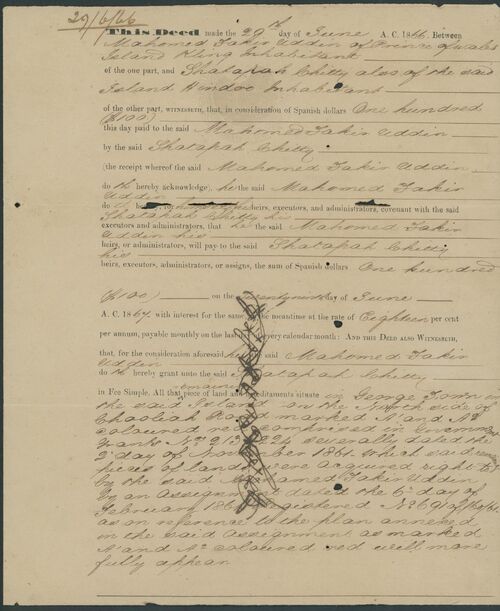 29/6/66
This Deed made the 29th day of June A. C. 1866 Between
Mahomed Fakir Uddin of Prince of Wales
Island Kling Inhabitant
of the one part, and Shatapah Chitty also of the said
Island Hindoo Inhabitant
of the other part, WITNESSETH, that, in consideration of Spanish dollars One hundred
($100)
this day paid to the said Mahomed Fakir Uddin
by the said Shatapah Chitty
(the receipt whereof the said Mahomed Fakir Uddin
doth hereby acknowledge) he the said Mahomed Fakir
Uddin
doth heirs, executors, and administrators, covenant with the said
Shatapah Chitty his
executors and administrators, that he the said Mahomed Fakir
Uddin his
heirs, or administrators, will pay to the said Shatapah Chitty
his
heirs, executors, administrators, or assigns, the sum of Spanish dollars One hundred
($100) on the twenty ninth day of June
A. C. 1867 with interest for the same in the meantime at the rate of Eighteen per cent
per annum, payable monthly on the last day of every calendar month: AND THIS DEED ALSO WITNESSETH,
that, for the consideration aforesaid he the said Mahomed Fakir
Uddin
doth hereby grant unto the said Shatapah Chitty
in Fee Simple. All that piece of land and hereditaments situate in George Town in
the said Island on the North side of
Choolia Road marked N¹ and N²
coloured red comprised in
Grants Nos 213 224 severally dated the
2d day of November 1861 which said
pieces of land were acquired
by the said Mahamed Fakir Uddin
by an Assignment dated the 6th day of
February registered No 691 of
as on reference to the plan annexed
in the said Assignment as marked
N¹ and N² coloured red will more
fully appear